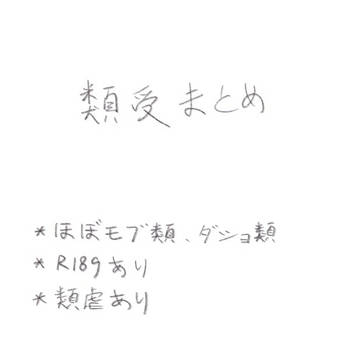 類受まとめ
*ほぼモブ類、ダショ類
*R18gあり
*類虐あり